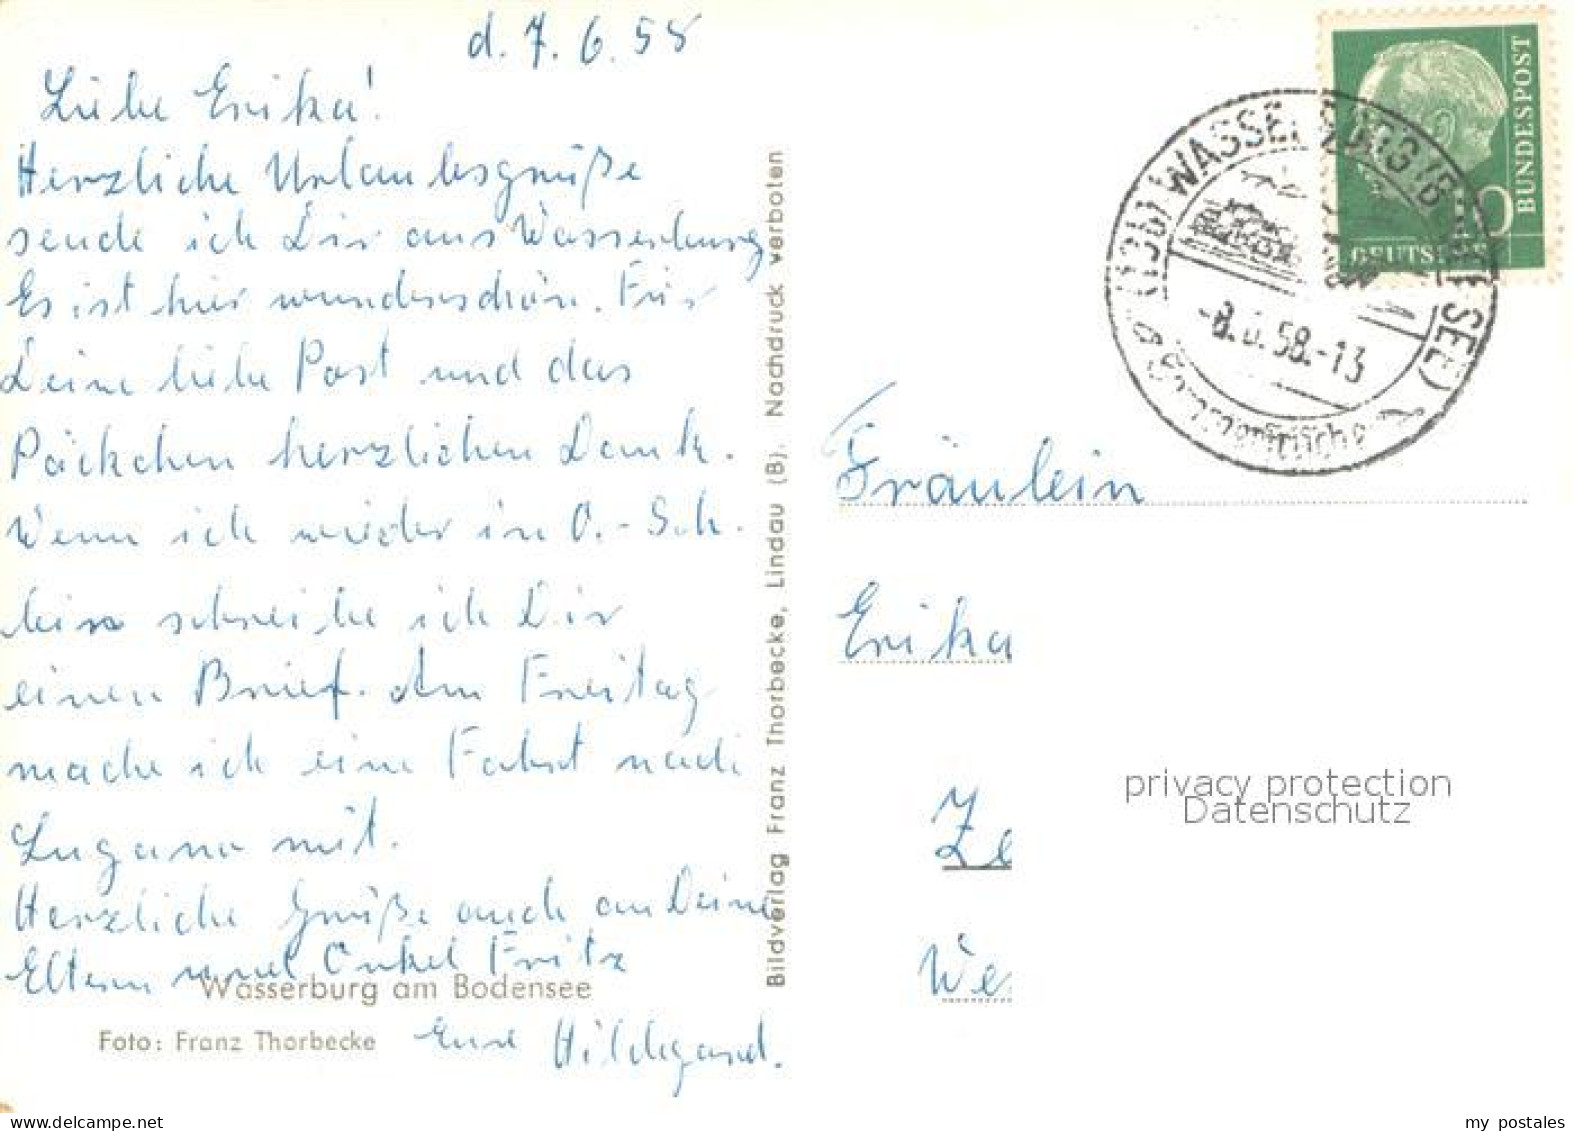 d. 7.6.58
Liebe Erika!
Herzliche Urlaubsgrüße
sende ich Dir aus Wasserburg
Es ist hier wunderschön. Für
Deine liebe Post und das
Päckchen herzlichen Dank.
Wenn ich wieder in O.-Sch.
bin schreibe ich Dir
einen Brief. Am Freitag
mache ich eine Fahrt nach
Lugano mit.
Herzliche Grüße auch an Deine
Eltern und Onkel Fritz
Eure Hildegard.
Wasserburg am Bodensee
Foto: Franz Thorbecke
Bildverlag Franz Thorbecke, Lindau (B), Nachdruck verboten
BUNDESPOST
DEUTSCHE
(13b) WASSERBURG (BODENSEE)
-8.6.58.-13
Fräulein
Erika
Ze
We
privacy protection
Datenschutz
my postales